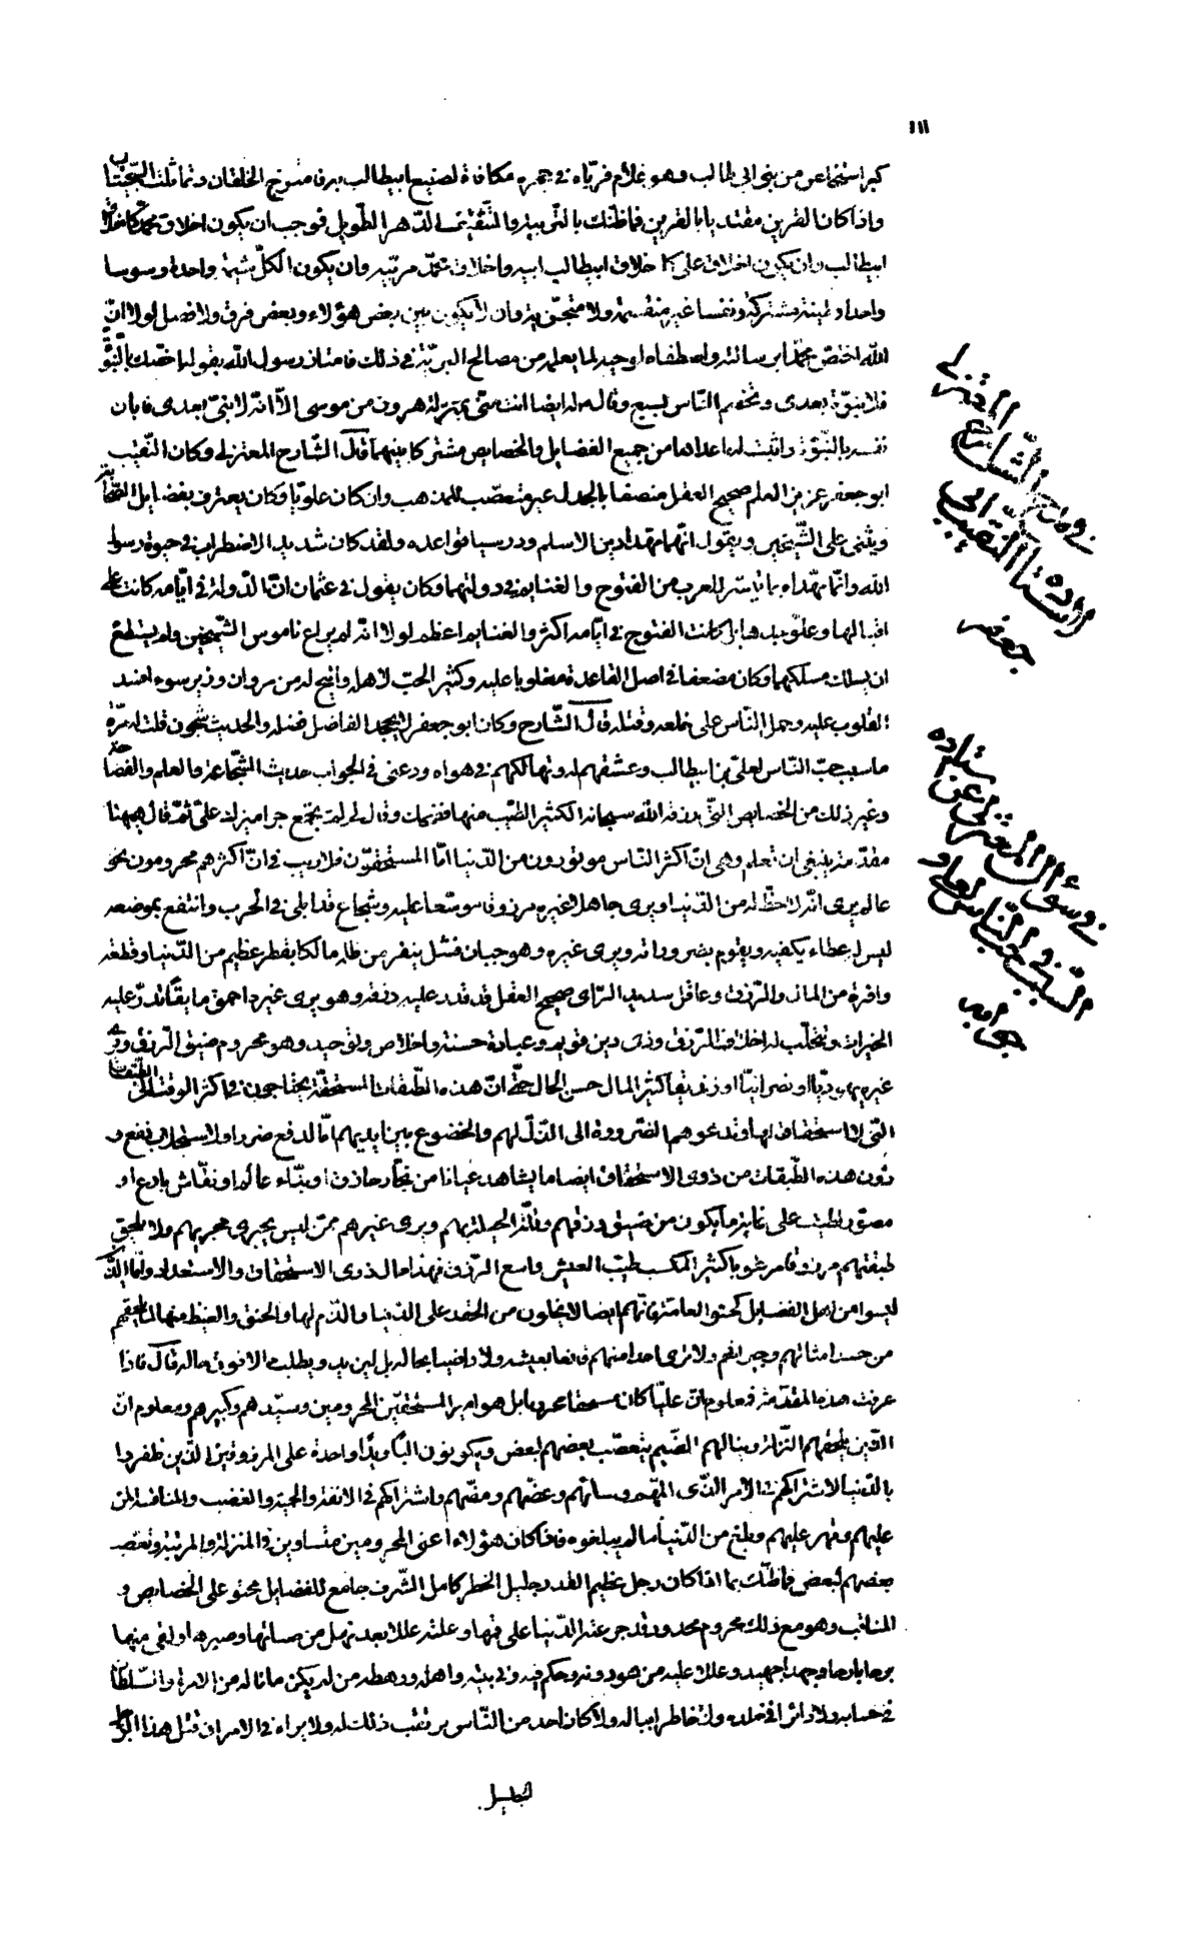 ١١١
كبر استخلصه من بني ابى طالب وهو غلام فربّاه في حجره مكافاة لصنيع ابيطالب به فامتزج الخلقان وتماثلت السجيّتان
واذا كان القرين مقتديا بالقرين فما ظنّك بالتربية والتثقيف الدّهر الطّويل فوجب ان يكون اخلاق محمّد كاخلاق
ابيطالب وان يكون اخلاق على كاخلاق ابيطالب ابيه واخلاق محمّد مربّيه وان يكون الكلّ شيمة واحدة وسوسا
واحدا وطينة مشتركة ونفسا غير منقسمة ولا متجزّية وان لا يكون بين بعض هؤلاء وبعض فرق ولا فضل لولا انّ
اللّه اختصّ محمّدا برسالته واصطفاه لوحيه لما يعلمه من مصالح البريّة في ذلك فامتاز رسول اللّه بقوله اخصمك بالنّبوّة
فلا نبوّة بعدى وتخصم النّاس بسبع وقال له ايضا انت منّى بمنزلة هرون من موسى الّا انّه لا نبىّ بعدى فابان
نفسه بالنّبوّة واثبت له ما عداها من جميع الفضايل والخصايص مشتركا بينهما قال الشّارح المعتزلى وكان النّقيب
ابو جعفر غزير العلم صحيح العقل منصفا في الجدل غير متعصّب للمذهب وان كان علويّا وكان يعترف بفضايل الصّحابة
ويثنى على الشّيخين ويقول انّهما مهّدا دين الاسلام ودرسيا قواعده ولقد كان شديد الاضطراب في حيوة رسول
اللّه وانّما مهّداه بما تيسّر للعرب من الفتوح والغنايم في دولتهما وكان يقول في عثمان انّ الدّولة في ايّامه كانت على
اقبالها وعلوّ جدها بل كانت الفتوح في ايّامه اكثر والغنايم اعظم لولا انّه لم يراع ناموس الشّيخين ولم يستطع
ان يسلك مسلكهما وكان مضعفا في اصل القاعدة مغلوبا عليه وكثير الحبّ لاهله واتيح له من مروان وزير سوء افسد
القلوب عليه وحمل النّاس على خلعه وقتله قال الشّارح وكان ابو جعفر لا يجحد الفاضل فضله والحديث شجون قلت له مرّة
ما سبب حبّ النّاس لعلىّ بن ابيطالب وعشقهم له وتهالكهم في هواه ودعنى في الجواب من حديث الشّجاعة والعلم والفصاحة
وغير ذلك من الخصايص الّتى رزقه اللّه سبحانه الكثير الطّيّب منها فضحك وقال لى كم تجمع جراميزك علىّ ثمّ قال ههنا
مقدّمة ينبغى ان تعلم وهى انّ اكثر النّاس موتورون من الدّنيا امّا المستحقّون فلا ريب في انّ اكثرهم محرومون نحو
عالم يرى انّه لا حظّ له من الدّنيا ويرى جاهلا غيره مرزوقا موسّعا عليه وشجاع قد ابلى في الحرب وانتفع بموضعه
ليس له عطاء يكفيه ويقوم بضروراته ويرى غيره وهو جبان فشل يفرق من ظلّه مالكا بقطر عظيم من الدّنيا وقطعة
وافرة من المال والرّزق وعاقل سديد الرّاى صحيح العقل قد قدر عليه رزقه وهو يرى غيره احمق مايقا تدرّ عليه
الخيرات وتتحلّب له اخلاف الرّزق وذى دين قويم وعبادة حسنة واخلاص وتوحيد وهو محروم ضيق الرّزق ويرى
غيره يهوديّا او نصرانيّا او زنديقا كثير المال حسن الحال حتّى انّ هذه الطّبقات المستحقّة يحتاجون في اكثر الوقت الى الطّبقات
الّتى لا استحقاق لها وتدعوهم الضّرورة الى الذّل لهم والخضوع بين ايديهم امّا لدفع ضرر او لاستجلاب نفع و
دون هذه الطّبقات من ذوى الاستحقاق ايضا ما يشاهد عيانا من نجّار حاذق او بنّاء عالم او نقّاش بارع او
مصوّر لطيف على غاية ما يكون من ضيق رزقهم وقلّة الحيلة بهم ويرى غيرهم ممّن ليس يجرى مجريهم ولا يلحق
طبقتهم مرزوقا مرغوبا كثير المكسب طيّب العيش واسع الرّزق فهذا حال ذوى الاستحقاق والاستعداد وامّا الّذين
ليسوا من اهل الفضايل كحشو العامّة فانّهم ايضا لا يخلون من الحقد على الدّنيا والذّم لها والحنق والغيظ منها لما يلحقهم
من حسد امثالهم وجيرانهم ولا ترى احدا منهم قانعا بعيشه ولا راضيا بحاله بل يستزيد ويطلب حالا فوق حاله قال فاذا
عرفت هذه المقدّمة فمعلوم انّ عليّا كان مستحقّا محروما بل هو امير المستحقّين المحرومين وسيّدهم وكبيرهم ومعلوم انّ
الّذين يلحقهم النّازلة وينالهم الضّيم يتعصّب بعضهم لبعض ويكونون البا ويدا واحدة على المرزوقين الّذين ظفروا
بالدّنيا لاشتراكهم في الامر الّذى المهم وساءهم وعضّهم ومضّهم واشتراكهم في الانفة والحميّة والغضب والمنافسة لمن
عليهم وقهر عليهم وبلغ من الدّنيا ما لم يبلغوه فاذا كان هؤلاء اعنى المحرومين متساوين في المنزلة والمرتبة وتعصّب
بعضهم لبعض فما ظنّك بما اذا كان رجل عظيم القدر جليل الخطر كامل الشّرف جامع للفضايل محتو على الخصايص و
المناقب وهو مع ذلك محروم محدود قد جرّعته الدّنيا علاقمها وعلته عللا بعد نهل من صابها وصبرها ولقى منها
برحا بارحا وجهدا جهيدا وعلا عليه من هو دونه وحكم فيه وفي بنيه واهله ورهطه من لم يكن ما ناله من الامرة والسّلطان
في حسابه ولا دائرا في خلده ولا خاطرا بباله ولا كان احد من النّاس يرتقب ذلك له ولا يراه في الامر ان قتل هذا الرّجل
الجليل
في مدح الشّارح المعتزلى
استاده النّقيب ابى
جعفر
في سؤال المعتزلى عن استاده
السّبب في حبّ النّاس لعلى و
جوابه